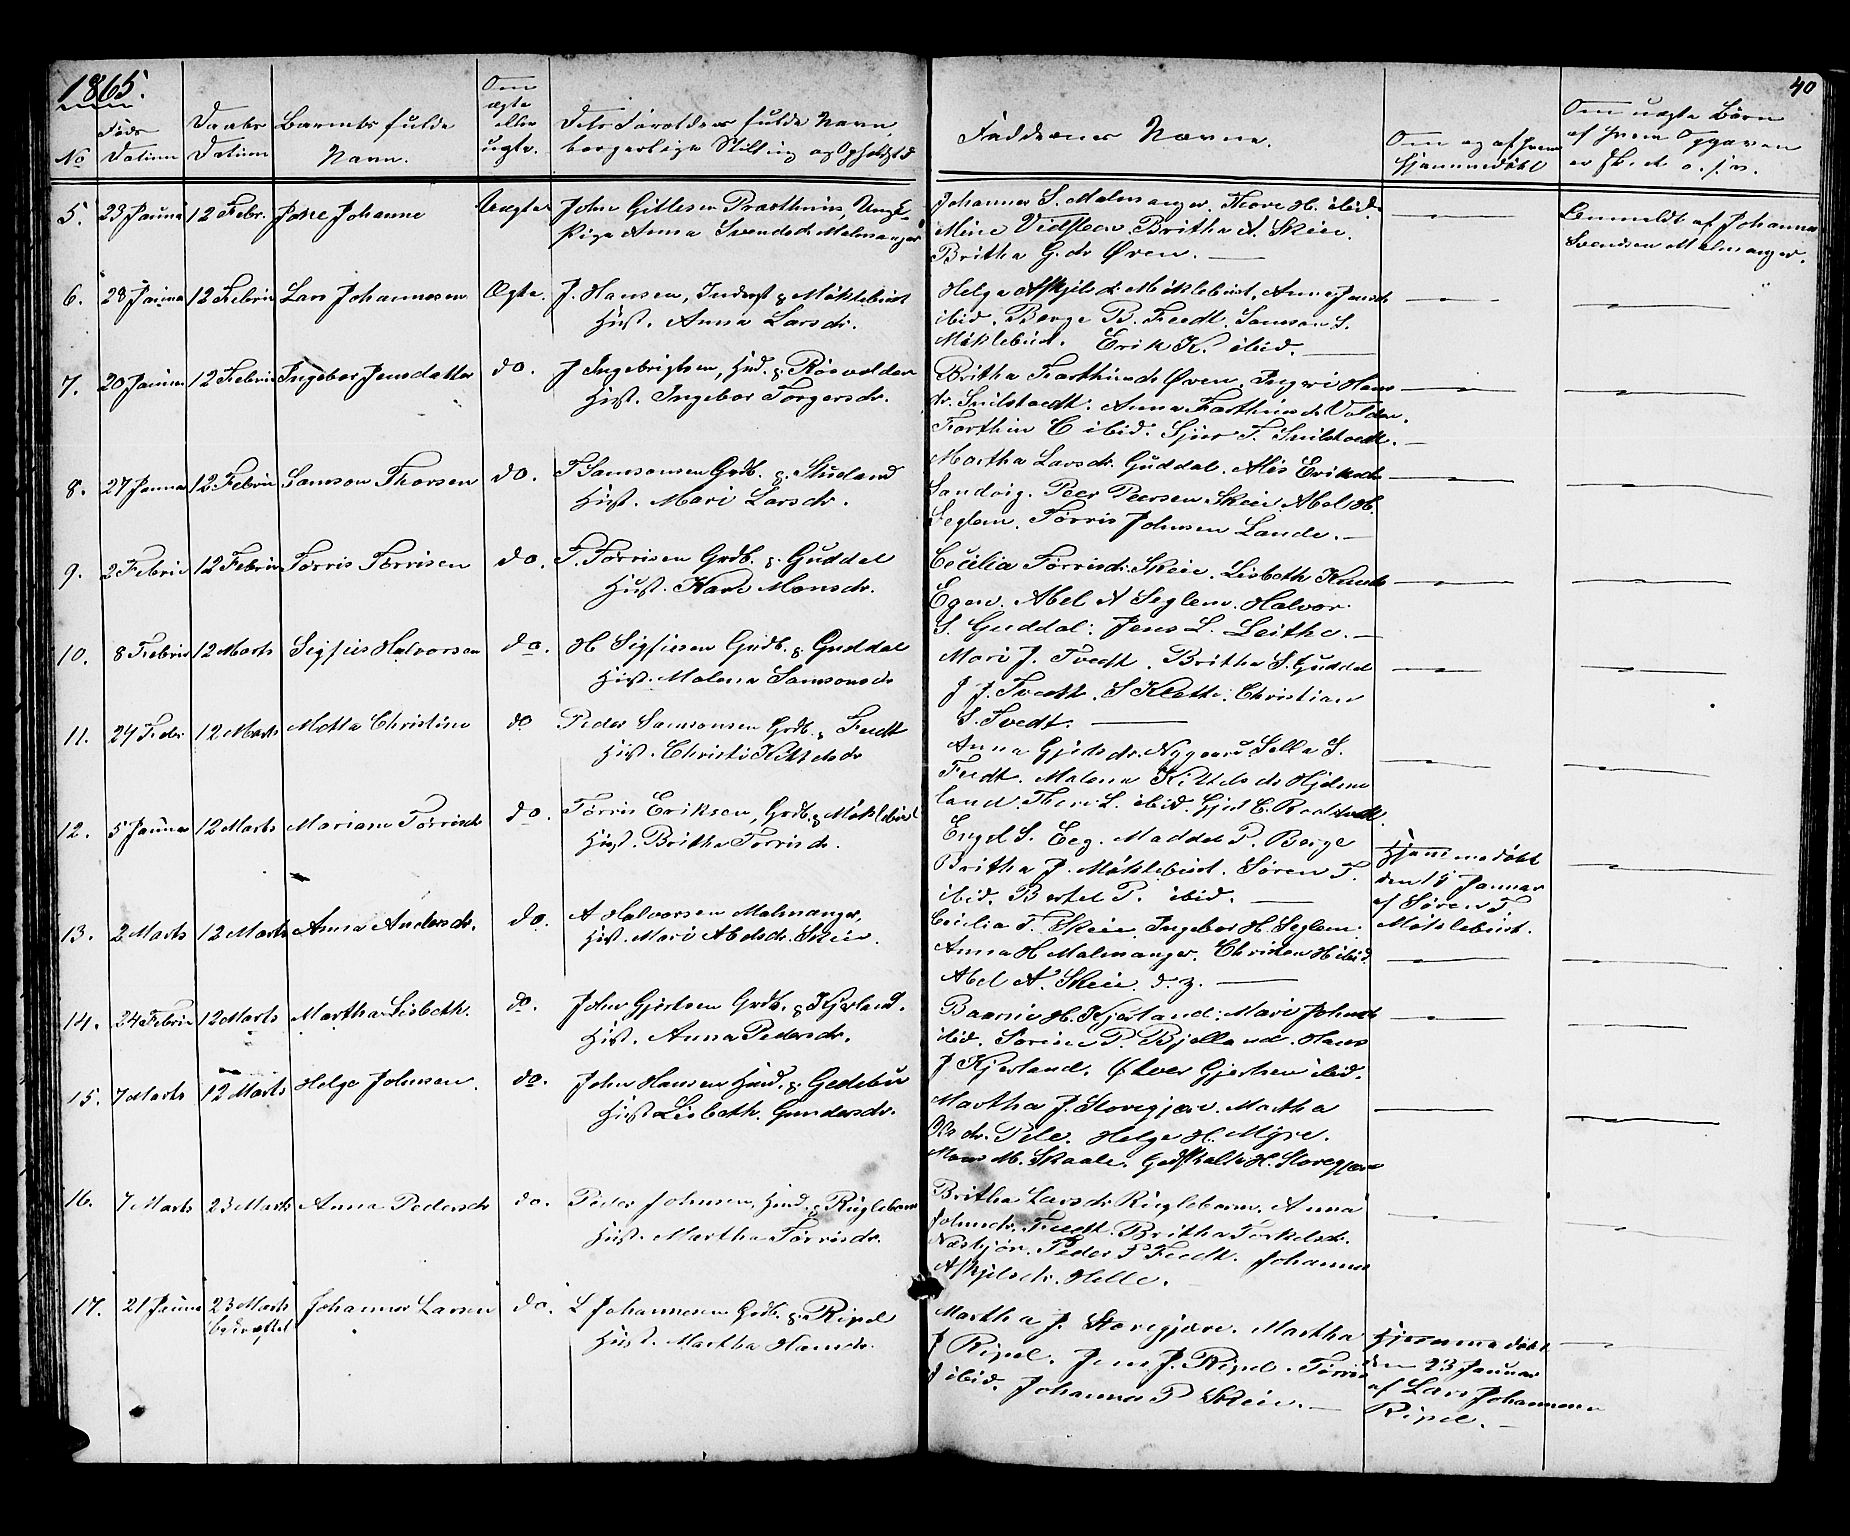 1865.
40
No
Føds
Datum
Daabs
Datum
Barnets fulde
Navn.
Om
ægte
eller
uægte.
Dets Forældres fulde Navn
borgerlige Stilling og Opholdsted
Faddernes Navne.
Om og af hvem
hjemmedøbt
Om uægte Børn
af hvem Opgaven
er skeet o.s.v.
5. 23 Januar 12 Febr. Johanne Uægte John Gitlesen
Pige Anna Svendsdr Malmanger
Johannes S. Malmanger. Thore H. ibid.
Mine Vidsteen. Britha A. Skeie.
Britha G.dr Øren.
Anmeldt af Johannes
Svendsen Malmanger.
6. 28 Januar 12 Febru Lars Johannesen Ægte. J. Hansen, Inderst p. Møklebust
Hust. Anna Larsdr.
Helga Askjelsd. Møklebust, Anna Jensdr
ibid. Berge B. Feedt. Samson S.
Møklebust. Erik K. ibid.
7. 20 Januar 12 Febru Ingebor Jensdatter do. J Ingebrigtsen, Hmd. p.
Hust. Ingebor Torgersdr.
Britha Farthinsdr Øren. Ingeri Hans
dr. Snilstvedt. Anna Farthinsdr Volden.
Farthin C ibid. Sjur T. Snilstvedt.
8. 27 Janua 12 Febru Samson Thorsen do. T Samsonsen Grdb. p. Stueland
Hust. Mari Larsdr.
Martha Larsdr. Guddal. Alis Eriksdr
Sandvig. Peer Peersen Skeie. Abel H.
Seglem. Tørris Johnsen Lande.
9. 2 Febru 12 Febru Tørris Tørrisen do. T. Tørrisen Grdb. p. Guddal
Hust. Kari Monsdr.
Cecilia Tørrisdr. Skeie. Lisbeth Knudsdr
Egen. Abel A Seglem. Halvor
S. Guddal. Jens L. Leithe.
10. 8 Febru 12 Marts Sigfus Halvorsen do. H Sigfusen Grdb. p. Guddal
Hust. Malena Samsonsdr
Mari J. Tvedt. Britha S. Guddal
J J. Tvedt. S Klette. Christian
S. Tvedt.
11. 24 Febr 12 Marts Metta Christine do Peder Samsonsen Grdb. p. Feedt
Hust. Christi Kittelsdr
Anna Gjertsdr. Nygaard. Sella S.
Feedt. Malena Kittelsdr Hjelme
land. Theri L. ibid. Gjert E.
12. 5 Januar 12 Marts Mariane Tørrisdr do. Tørris Eriksen, Grdb. p. Møklebust
Hust. Britha Tørrisdr.
Engel S. Eeg. Maddel P. Berge
Britha J. Møklebust. Søren T.
ibid. Bertel P. ibid.
Hjemmedøbt
den Januar
af Søren T
Møklebust.
13. 2 Marts 12 Marts Anna Andersdr. do. A Halvorsen Malmanger,
Hust. Mari Abelsdr. Skeie.
Cecilia T. Skeie. Ingebor H. Seglem.
Anna H Malmanger. Christen H ibid.
Abel A. Skeie d. y.
14. 24 Febru 12 Marts Martha Lisbeth. do. John Gjertsen Grdb. p. Kjerland.
Hust. Anna Pedersdr.
H. Kjerland. Mari Johnsdr
ibid. Sørine P. Bjelland. Hans
J Kjerland. Gjertsen ibid.
15. 7 Marts 12 Marts Helge Johnsen. do. John Hansen Hmd. p.
Hust Lisbeth Gundersdr.
Martha J. Storegjære. Martha
dr. Pile. Helge H. Myre.
Mons M. Skaale. Godskalk H. Storegjære
16. 7 Marts 23 Marts Anna Pedersdr do. Peder Johnsen, Hmd. p. Ruglebarm
Hust. Martha Tørrisdr.
Britha Larsdr Ruglebarm. Anna
Johnsdr. Feedt. Britha Torkelsdr.
Nesbjør. Peder J Feedt. Johannes
Askjelsdr. Helle.
17. 21 Janua 23 Marts Johannes Larsen do. L Johannesen Grdb. p. Ripel
bekræftet
Hust. Martha Hansdr.
Martha J. Storegjære. Martha
J Ripel. Jens J. Ripel. Tørris
J ibid. Johannes P Skeie.
Hjemmedøbt
den 23 Januar
af Lars Johannesen
Ripel.